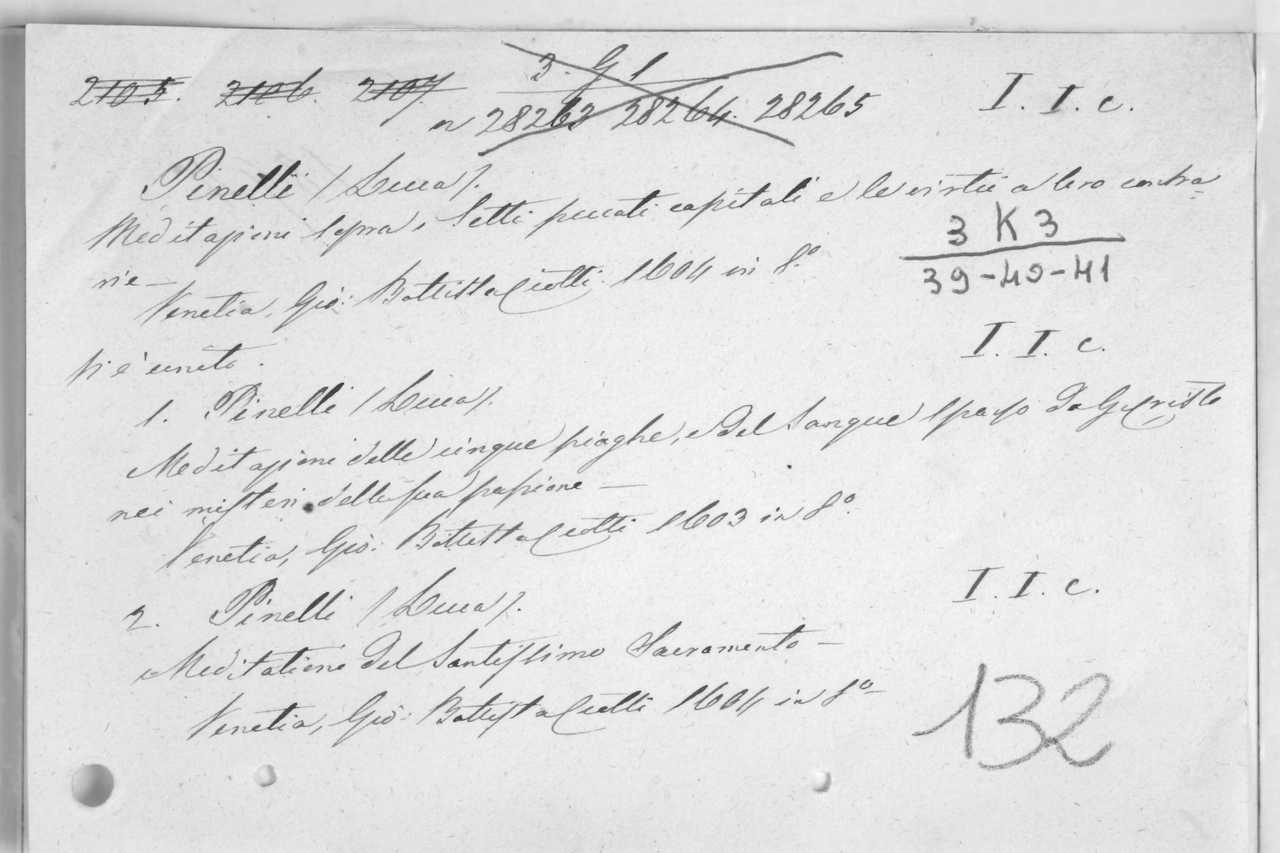 2105. 2106. 2107.
3. G 1
n 28263 28264. 28265
I. I. c.
Pinelli (Luca).
Meditazioni sopra i Setti peccati capitali e le virtù a loro contra-
rie —
3 K 3
39-40-41
Venetia, Gio: Battista Ciotti. 1604 in 8.°
I. I. c.
Si è unito.
1. Pinelli (Luca).
Meditazioni delle cinque piaghe, e del Sangue sparso da G. Cristo
nei misteri della sua passione —
Venetia, Gio: Battista Ciotti 1603 in 8.°
I. I. c.
2. Pinelli (Luca).
Meditatione del Santissimo Sacramento —
Venetia, Gio: Battista Ciotti 1604 in 8.° —
132